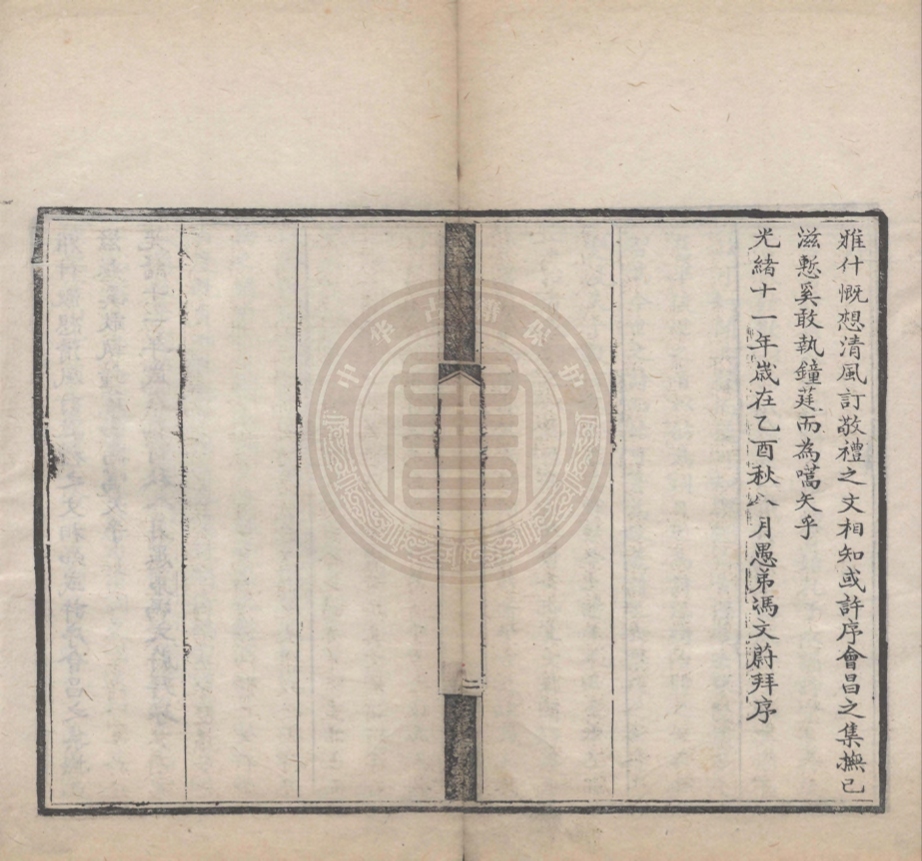 雅什慨想清風訂敬禮之文相知或許序會昌之集撫己
滋慙奚敢執鐘莛而為嚆矢乎
光緒十一年歲在乙酉秋八月愚弟馮文蔚拜序
二
中华古籍保护